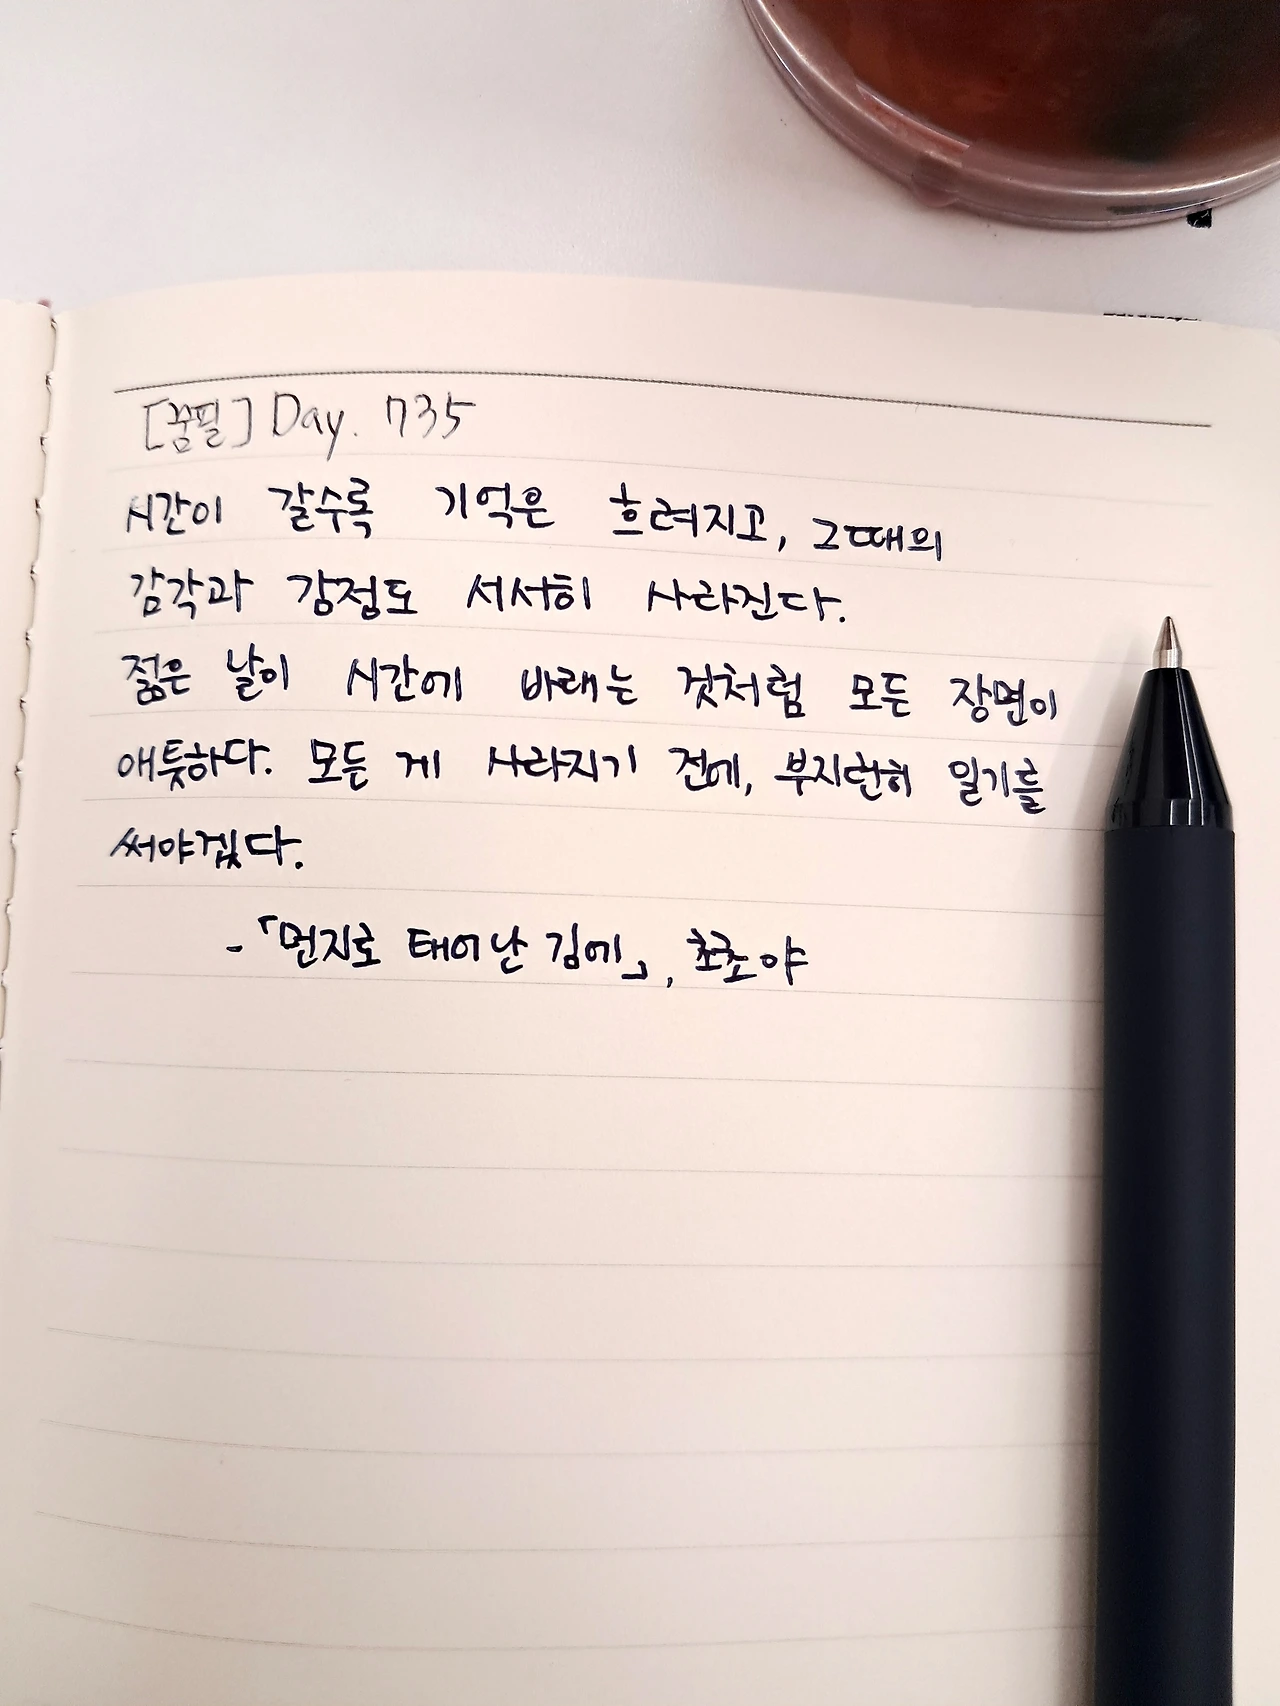 [꿈필] Day. 735
시간이 갈수록 기억은 흐려지고, 그때의
감각과 감정도 서서히 사라진다.
젊은 날이 시간에 바래는 것처럼 모든 장면이
애틋하다. 모든 게 사라지기 전에, 부지런히 일기를
써야겠다.
-「먼지로 태어난 김에」, 초초야